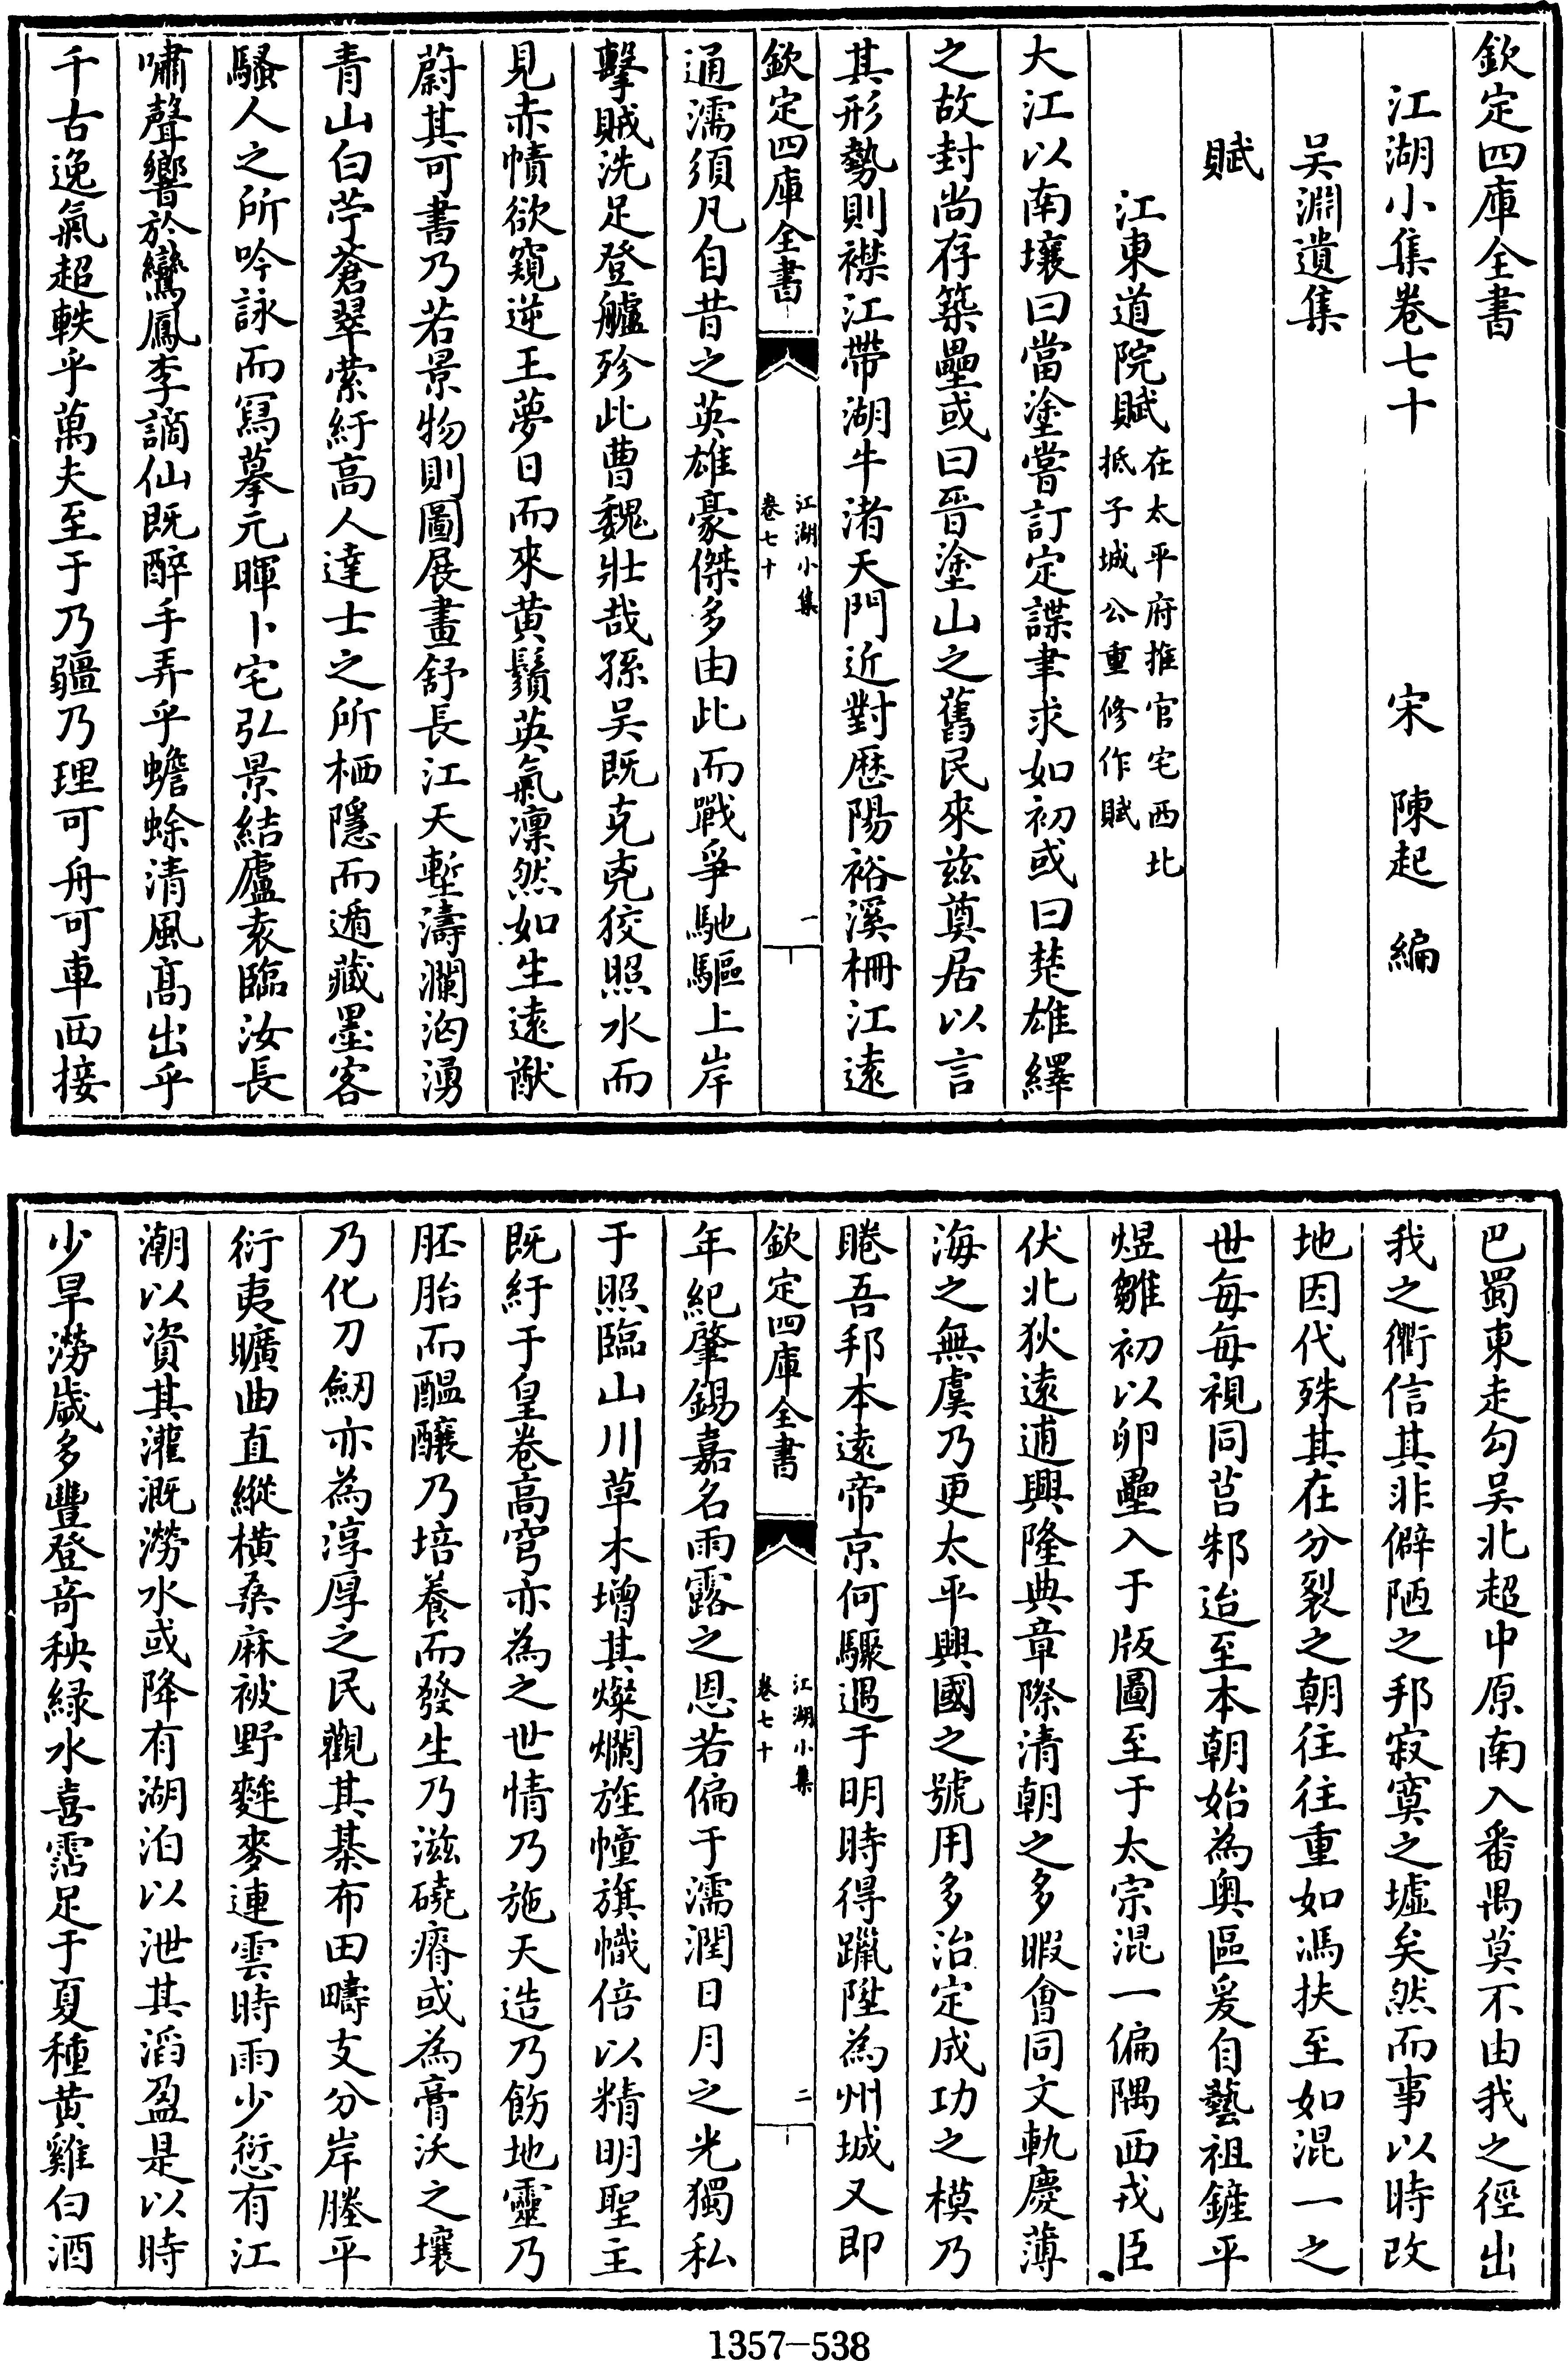 欽定四庫全書
江湖小集卷七十
宋　陳起　編
吳淵遺集
賦
江東道院賦在太平府推官宅西北
抵子城公重修作賦
大江以南壤曰當塗嘗訂定諜聿求如初或曰楚雄繹
之故封尚存築壘或曰晉塗山之舊民來兹奠居以言
其形勢則襟江帶湖牛渚天門近對歴陽裕溪柵江遠
欽定四庫全書
江湖小集
卷七十
一
通濡須凡自昔之英雄豪傑多由此而戰爭馳驅上岸
擊賊洗足登艫殄此曹魏壯哉孫吳既克克狡照水而
見赤幘欲窺逆王夢日而來黄鬚英氣凛然如生遠猷
蔚其可書乃若景物則圖展畫舒長江天塹濤瀾洶湧
青山白苧蒼翠縈紆高人達士之所栖隱而遁藏墨客
騷人之所吟詠而冩摹元暉卜宅弘景結廬袁臨汝長
嘯聲響於鸞鳳李謫仙既醉手弄乎蟾蜍清風髙出乎
千古逸氣超軼乎萬夫至于乃疆乃理可舟可車西接
巴蜀東走勾吳北超中原南入番禺莫不由我之徑出
我之衢信其非僻陋之邦寂寞之墟矣然而事以時改
地因代殊其在分裂之朝往往重如馮扶至如混一之
世每每視同莒邾迨至本朝始為奥區爰自藝祖鏟平
煜雛初以卵壘入于版圖至于太宗混一偏隅西戎臣
伏北狄遠逋興隆典章際清朝之多暇會同文軌慶薄
海之無虞乃更太平興國之號用多治定成功之模乃
睠吾邦本遠帝京何驟遇于明時得躐陞為州城又即
欽定四庫全書
江湖小集
卷七十
二
年紀肇錫嘉名雨露之恩若偏于濡潤日月之光獨私
于照臨山川草木增其燦爛旌幢旗幟倍以精明聖主
既紆于皇卷高穹亦為之世情乃施天造乃飭地靈乃
胚胎而醖釀乃培養而發生乃滋磽瘠或為膏沃之壤
乃化刀劒亦為淳厚之民觀其棊布田疇支分岸塍平
衍夷曠曲直縱横桑麻被野麰麥連雲時雨少愆有江
潮以資其灌溉澇水或降有湖泊以泄其滔盈是以時
少旱澇歲多豐登竒秧緑水喜霑足于夏種黄雞白酒
1357-538